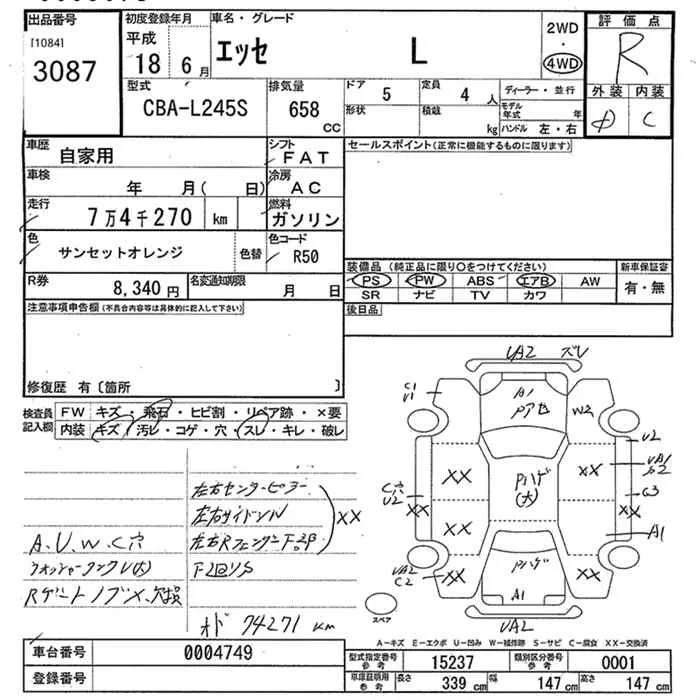 出品番号
[1084]
3087
初度登録年月
平成
18 6月
車名・グレード
エッセ L
2WD
・
4WD
評価点
R
外装 内装
C
型式
CBA-L245S
排気量
658
CC
ドア 5
定員 4 人
形状
積載 kg
ディーラー・並行
モデル年式 年
ハンドル 左・右
車歴
自家用
シフト
FAT
車検
年 月( 日)
冷房
AC
走行
7万4千270 km
燃料
ガソリン
色
サンセットオレンジ
色替
色コード
R50
R券
8,340円
名変通知期限
月 日
セールスポイント(正常に機能するものに限ります)
装備品 (純正品に限り○をつけてください)
PS PW ABS エアB AW
SR ナビ TV カワ
新車保証書
有・無
後日品
注意事項申告欄(不具合内容等は具体的に記入して下さい)
修復歴 有〔箇所 〕
検査員記入欄
FW キズ・飛石・ヒビ割・リペア跡・×要
内装 キズ・汚レ・コゲ・穴・スレ・キレ・破レ
左右センターピラー
左右サイドシルW
A.U.W.C穴 左右Rフェンダー
XX
Rゲートノブ×、欠損
オド 74271 km
UA2 ズレ
C1
U1
A1
W2
U2
XX
Pハゲ
(大)
XX
UA1
C3
C穴
U2
XX
XX
XX
A1
UA2
C2
XX
Pハゲ
A1
XX
UA2
スペア
A-キズ E-エクボ U-凹み W-補修跡 S-サビ C-腐食 XX-交換済
車台番号 0004749
登録番号
型式指定番号 参考 15237
類別区分番号 参考 0001
車庫証明用 参考 長さ 339 cm 幅 147 cm 高さ 147 cm